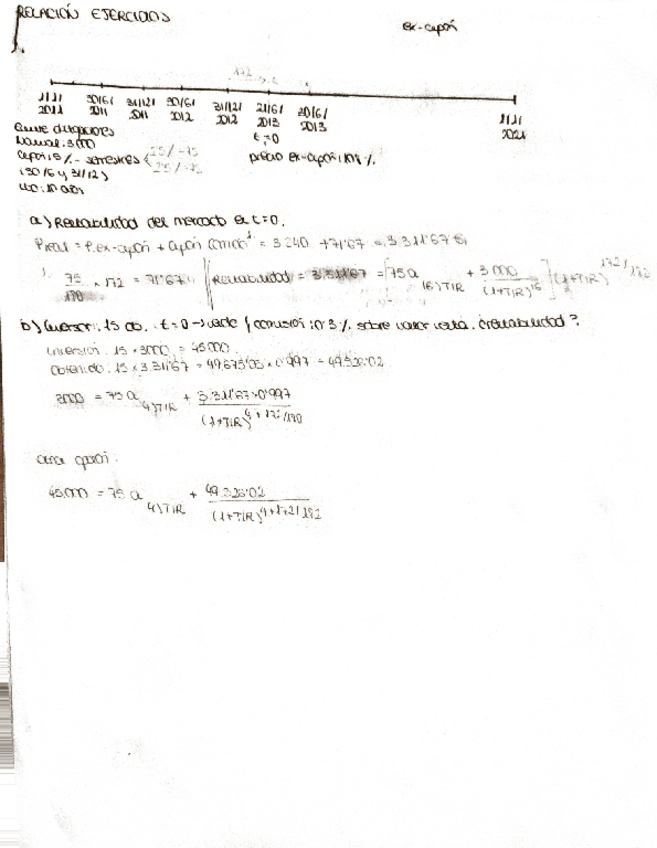 RELACIÓN EJERCICIOS
ex-cupón
172
1/1/ 30/6/ 31/12/ 30/6/ 31/12/ 21/6/ 30/6/ 1/1/
2011 2011 2011 2012 2012 2013 2013 2021
t=0
Nominal: 3000
cupón: 5% - semestres
(30/6 y 31/12)
precio ex-cupón: 108%
a) Rentabilidad del mercado en t=0.
Preal = P.ex-cupón + cupón corrido¹ = 3.240 + 71'67 = 3.311'67 €
1. 75/180 × 172 = 71'67 Rentabilidad = 3.311'67 = [75 a 16⌉TIR + 3000/(1+TIR)^16] (1+TIR)^172/
b) Inversor: 15 ob. t=0 → vende / comisión: 0'3% sobre valor venta. ¿rentabilidad?
Inversión: 15 × 3000 = 45000
Obtenido: 15 × 3.311'67 = 49.675'05 × 0'997 = 49.526'02
3000 = 75 a 4⌉TIR + 3.311'67×0'997/(1+TIR)^4+172/180
otra opción:
45.000 = 75 a 4⌉TIR + 49.526'02